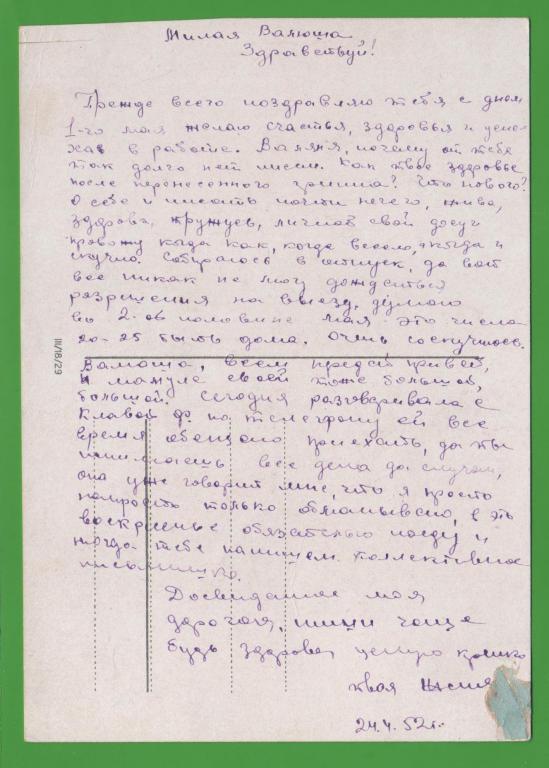 Милая Валюша
Здравствуй!
Прежде всего поздравляю тебя с днем
1-го мая желаю счастья, здоровья и успе-
хов в работе. Валяня, почему от тебя
так долго нет писем. Как твое здоровье
после перенесенного гриппа? Что нового?
О себе и писать почти нечего, жива,
здорова, тружусь, личной свой досуг
провожу когда как, когда весело, когда и
скучно. Собираюсь в отпуск, да вот
все никак не могу дождаться
разрешения на выезд, думаю
во 2-ой половине мая это числа
20-25 быть дома. Очень соскучилась.
Валюша, всем передай привет,
и мамуле своей тоже большой,
большой. Сегодня разговаривала с
Клавой Ф. по телефону ей все
время обещаю приехать, да ты
понимаешь все дела да случаи,
она уже говорит мне, что я просто
напросто только обманываю, в это
воскресенье обязательно поеду и
тогда тебе напишем коллективное
письмишко.
Досвидание моя
дорогая, пиши чаще
будь здорова, целую крепко
твоя
24.4.52г.
III/18/29